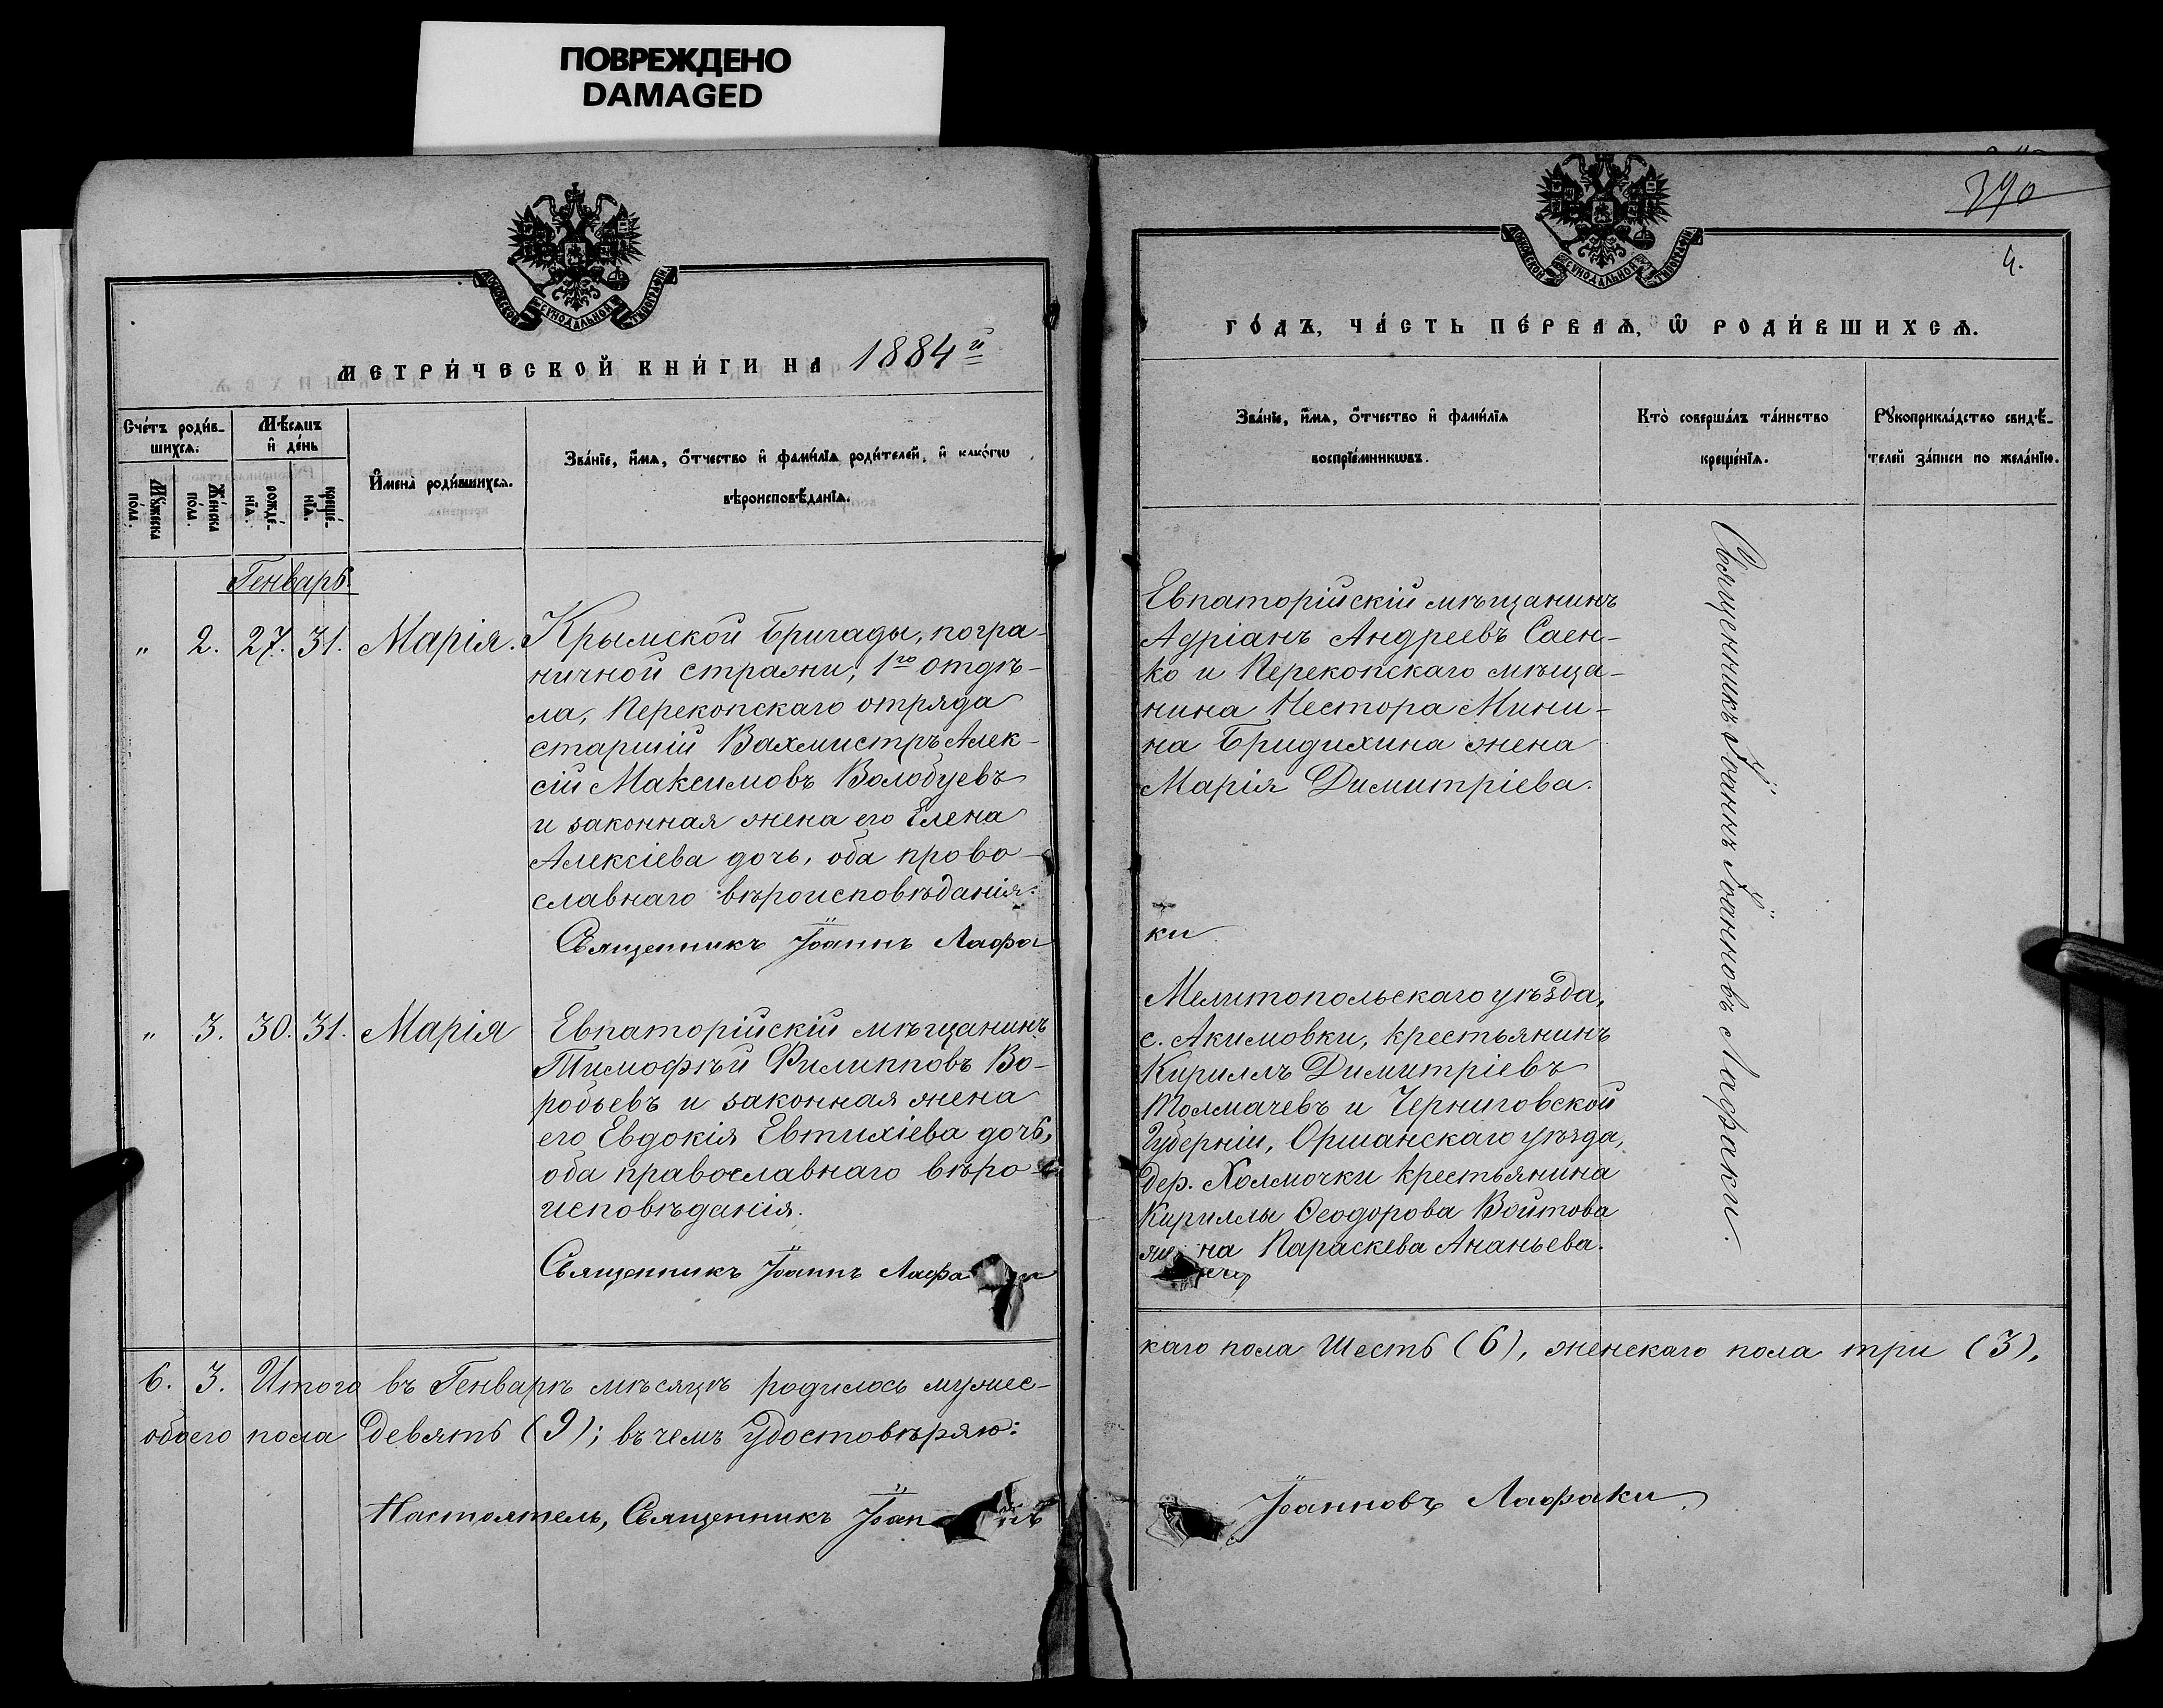 ПОВРЕЖДЕНО
DAMAGED
МОСКОВСКОЙ СѴНОДАЛЬНОЙ ТИПОГРАФІИ
МЕТРИ́ЧЕСКОЙ КНИ́ГИ НА 1884й
Сче́тъ роди́в-
шихсѧ:
Мꙋ́жеска
пола.
Же́нска
по́ла.
Мѣ́сѧцъ
и҆ де́нь
рожде́-
нїѧ.
креще́-
нїѧ.
И҆мена̀ роди́вшихсѧ.
Зва́нїе, и҆́мѧ, ѻ҆́тчество и҆ фами́лїѧ роди́телей, и҆ како́гѡ
вѣроисповѣ́данїѧ.
Генварь.
„ 2. 27. 31. Марія. Крымской Бригады, погра-
ничной стражи, 1го отдѣ-
ла, Перекопскаго отряда
старшій Вахмистръ Алек-
сій Максимовъ Волобуевъ
и законная жена его Елена
Алексіева дочь, оба право-
славнаго вѣроисповѣданія:
Священникъ Іоаннъ Лафа
„ 3. 30. 31. Марія Евпаторійскій мѣщанинъ
Тимофѣй Филипповъ Во-
робьевъ и законная жена
его Евдокія Евтихіева дочь,
оба православнаго вѣро-
исповѣданія.
Священникъ Іоаннъ Лафа
6. 3. Итого въ Генварѣ мѣсяцѣ родилось мужес-
обоего пола девять (9); въ чемъ удостовѣряю:
Настоятель, Священникъ Іоан
390
4.
МОСКОВСКОЙ СѴНОДАЛЬНОЙ ТИПОГРАФІИ
ГО́ДЪ, ЧА́СТЬ ПЕ́РВАѦ, Ѡ҆ РОДИ́ВШИХСѦ.
Зва́нїе, и҆́мѧ, ѻ҆́тчество и҆ фами́лїѧ
воспрїе́мникѡвъ.
Кто̀ соверша́лъ та́инство
креще́нїѧ.
Рꙋкоприкла́дство свидѣ́-
телей за́писи по жела́нїю.
Евпаторійскій мѣщанинъ
Адріанъ Андреевъ Саен-
ко и Перекопскаго мѣща-
нина Нестора Мини-
на Бридихина жена
Марія Димитріева.
ки
Мелитопольскаго уѣзда,
с. Акимовки, крестьянинъ
Кириллъ Димитріевъ
Толмачевъ и Черниговской
Губерніи, Оршанскаго уѣзда,
дер. Холмочки крестьянина
Кириллы Ѳеодорова Войтова
жена Параскева Ананьева.
Священникъ Іоаннъ Іоанновъ Лафаки.
каго пола шесть (6), женскаго пола три (3),
Іоанновъ Лафаки.